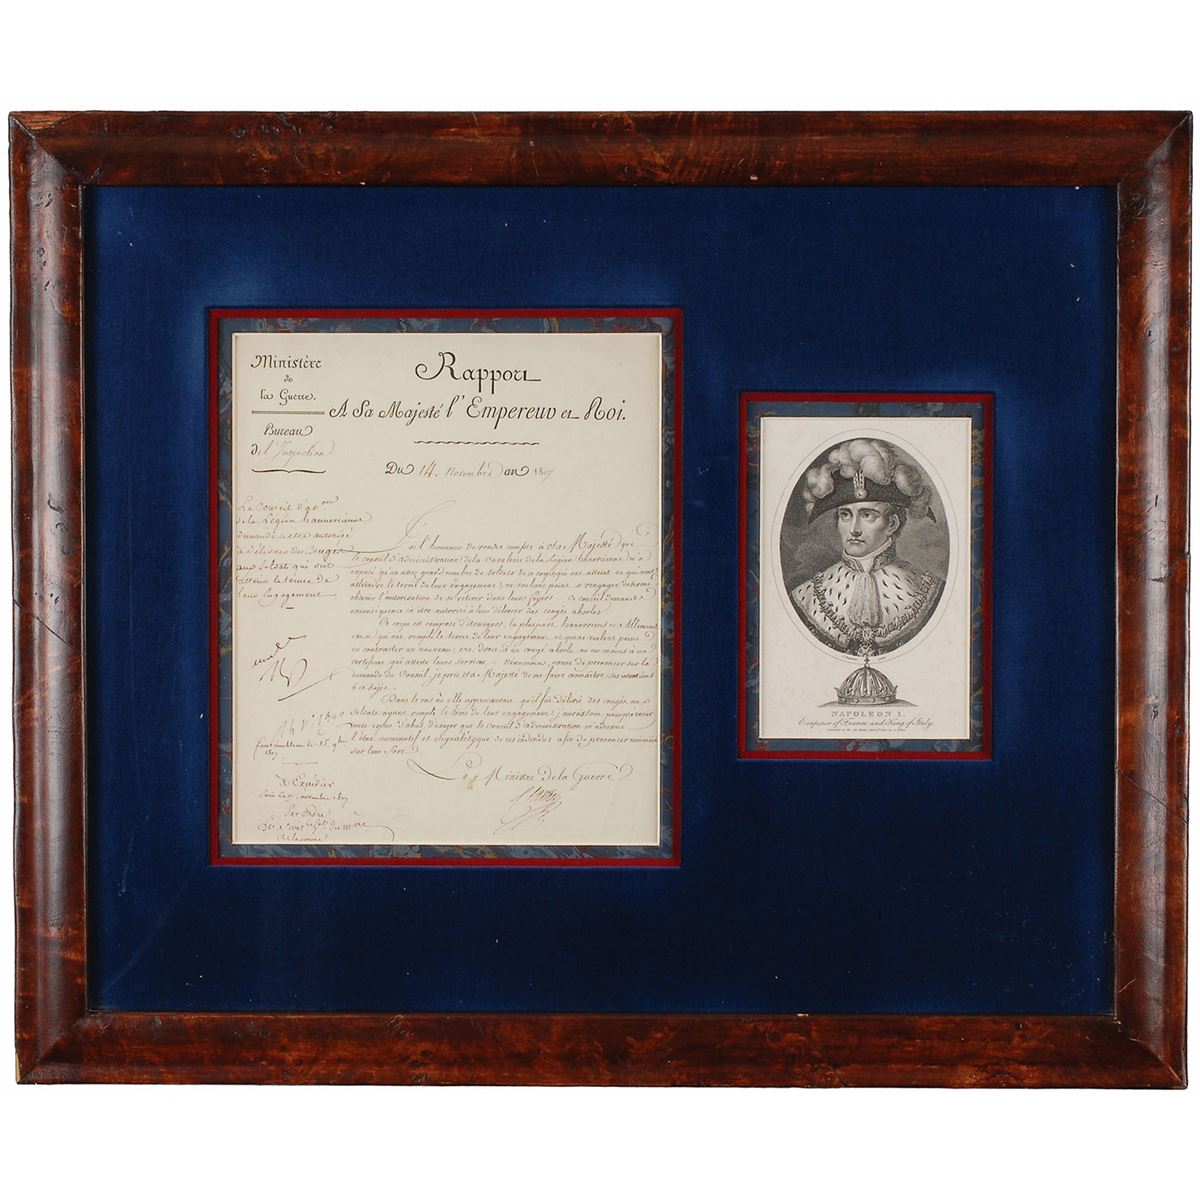 Ministère
de
la Guerre.
Bureau
de l'Inspection
Rapport
A Sa Majesté l'Empereur et Roi.
Du 14. Novembre an 1807
Le Conseil d'a^on
de la Légion hanovrienne
demande à être autorisé
à délivrer des Congés
aux Soldats qui ont
terminé le tems de
leur Engagement
J'ai l'honneur de rendre compte à Sa Majesté que
le conseil d'administration de la Cavalerie de la Légion hanovrienne m'a
exposé qu'un assez grand nombre de soldats de ce corps qui ont atteint ou qui vont
atteindre le terme de leur engagement, ne voulant point se rengager, désirent
obtenir l'autorisation de se retirer dans leurs foyers. Ce conseil demande
en conséquence à être autorisé à leur délivrer des congés absolus.
Ce corps est composé d'étrangers, la pluspart hanovriens et Allemands
ceux qui ont rempli le terme de leur engagement et qui ne veulent point
en contracter un nouveau, ont droit à un congé absolu ou au moins à un
certificat qui atteste leurs services. Néanmoins, avant de prononcer sur la
demande du Conseil, je prie Sa Majesté de me faire connaître ses intentions
à ce sujet.
Dans le cas où elle approuverait qu'il fut délivré des congés aux
soldats ayant rempli le tems de leur engagement, j'aurai soin, pour prévenir
toute espèce d'abus, d'exiger que le Conseil d'administration m'adresse
l'état nominatif et signalétique de ces individus afin de prononcer moi-même
sur leur sort.
Le Ministre de la Guerre
Fontainebleau le 15 9bre
1807
A Expédier
1807
Par Ordre
de la guerre
NAPOLEON I.
Emperor of France and King of Italy.